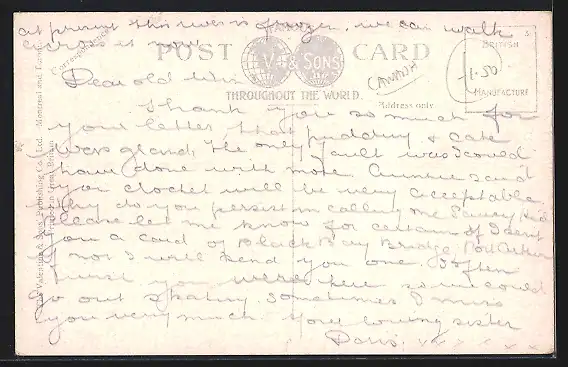 at present this river is frozen, we can walk
across it now
POST CARD
V & SONS
THROUGHOUT THE WORLD.
Correspondence
Address only
BRITISH
MANUFACTURE
CANADA
1.50
Dear old Win
Thank you so much for
your letter, that pudding & cake
was grand. The only fault was I could
have done with more. Auntie said
you crochet will be very acceptable.
Why do you persist in calling me
Please let me know for certain if I sent
you a card of Black Bay Bridge Port Arthur
if not I will send you one. I often
wish you were here so we could
go out skating. Sometimes I miss
you very much. Your loving sister
Doris. x x x x x x
Valentine & Sons Publishing Co., Ltd. Montreal and Toronto
Printed in Great Britain